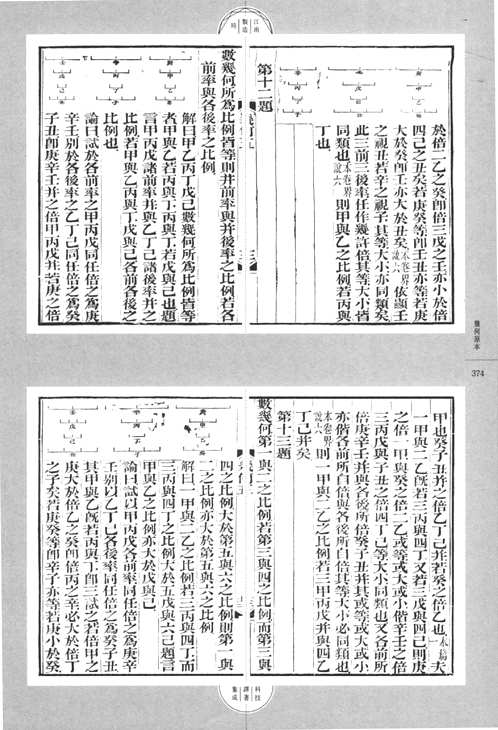 江南
製造
局
於倍二乙之癸卽倍三戊之壬亦小於倍
四己之丑矣若庚癸等卽壬丑亦等若庚
大於癸卽壬亦大於丑矣本卷界說六依顯壬
之視丑若辛之視子其等大小亦同類矣
此三前三後率任作幾許倍其等大小皆
同類也本卷界說六則甲與乙之比例若丙與
丁也
第十二題
數幾何所爲比例皆等則幷前率與幷後率之比例若各
前率與各後率之比例
解曰甲乙丙丁戊己數幾何所爲比例皆等
者甲與乙若丙與丁丙與丁若戊與己也題
言甲丙戊諸前率幷與乙丁己諸後率幷之
比例若甲與乙丙與丁戊與己各前各後之
比例也
論曰試於各前率之甲丙戊同任倍之爲庚
辛壬別於各後率之乙丁己同任倍之爲癸
子丑卽庚辛壬幷之倍甲丙戊幷若庚之倍
幾何原本
374
甲也癸子丑幷之倍乙丁己幷若癸之倍乙也夫
一甲與二乙旣若三丙與四丁又若三戊與四己則庚
之倍一甲與癸之倍二乙或等或大或小偕辛壬之倍
三丙戊與子丑之倍四丁己等大小同類也又各前所
倍庚辛壬幷與各後所倍癸子丑幷其或等或大或小
亦偕各前所自倍與各後所自倍其等大小必同類也
本卷界說六則一甲與二乙之比例若三甲丙戊幷與四乙
丁己幷矣
第十三題
數幾何第一與二之比例若第三與四之比例而第三與
四之比例大於第五與六之比例則第一與
二之比例亦大於第五與六之比例
解曰一甲與二乙之比例若三丙與四丁而
三丙與四丁之比例大於五戊與六己題言
甲與乙之比例亦大於戊與己
論曰試以甲丙戊各前率同任倍之爲庚辛
壬別以乙丁己各後率同任倍之爲癸子丑
其甲與乙旣若丙與丁卽三試之若倍甲之
庚大於倍乙之癸卽倍丙之辛必大於倍丁
之子矣若庚癸等卽辛子亦等若庚小於癸
科技
譯著
集成